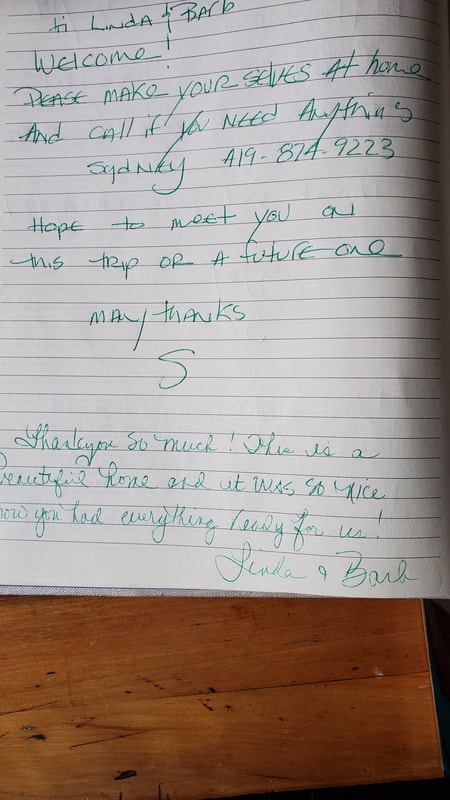 Hi Linda & Barb
Welcome!
Please make yourselves at home
And call if you need Anything
Sydney 419-874-9223
Hope to meet you on
this trip or a future one
many thanks
S
Thankyou so much! This is a
beautiful home and it was so nice
how you had everything ready for us!
Linda & Barb